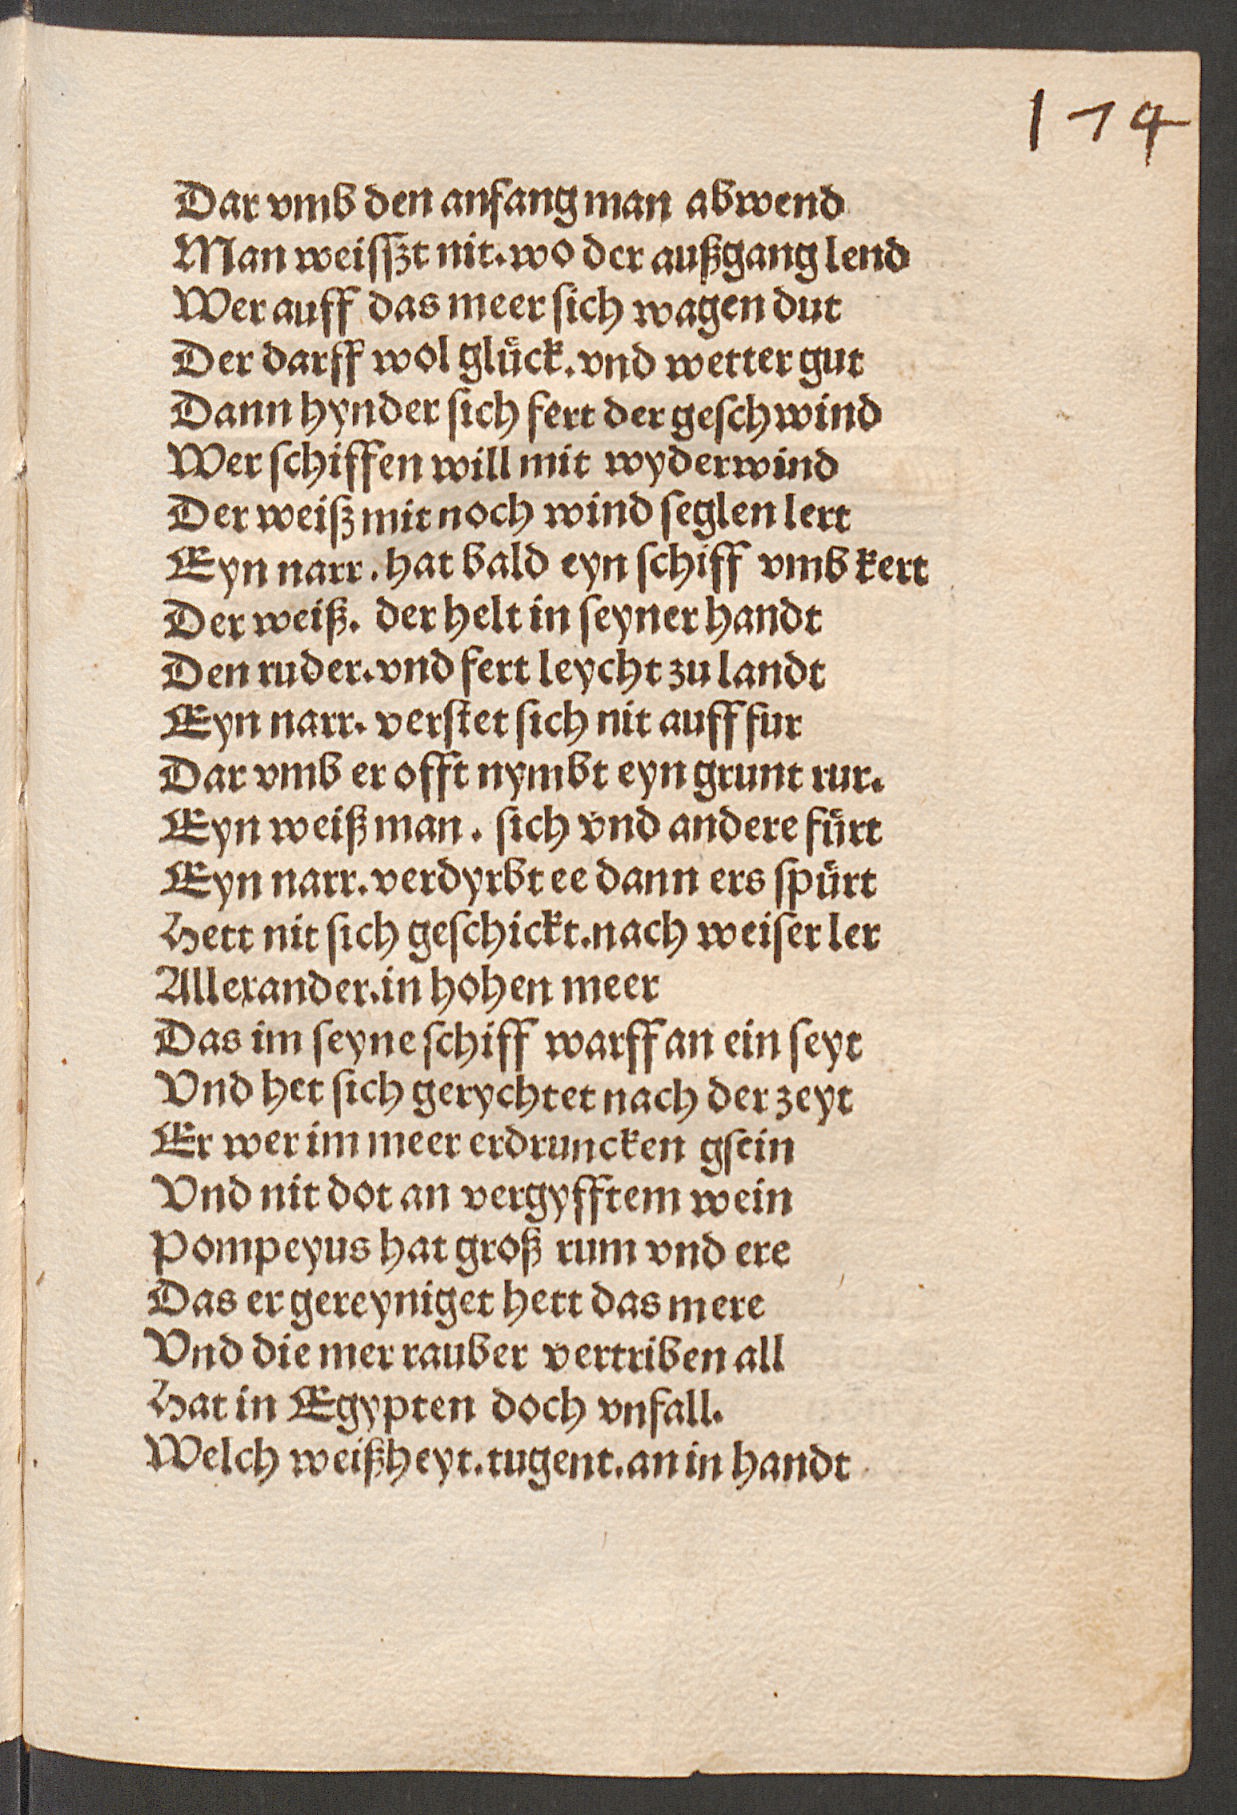 174
Dar vmb den anfang man abwend
Man weisszt nit. wo der außgang lend
Wer auff das meer sich wagen dut
Der darff wol glůck. vnd wetter gut
Dann hynder sich fert der geschwind
Wer schiffen will mit wyderwind
Der weiß mit noch wind seglen lert
Eyn narr. hat bald eyn schiff vmb kert
Der weiß. der helt in seyner handt
Den ruder. vnd fert leycht zu landt
Eyn narr. verstet sich nit auff fur
Dar vmb er offt nymbt eyn grunt rur.
Eyn weiß man. sich vnd andere fůrt
Eyn narr. verdyrbt ee dann ers spůrt
Hett nit sich geschickt. nach weiser ler
Allexander. in hohen meer
Das im seyne schiff warff an ein seyt
Vnd het sich gerychtet nach der zeyt
Er wer im meer erdruncken gsein
Vnd nit dot an vergyfftem wein
Pompeyus hat groß rum vnd ere
Das er gereyniget hett das mere
Vnd die mer rauber vertriben all
Hat in Egypten doch vnfall.
Welch weißheyt. tugent. an in handt